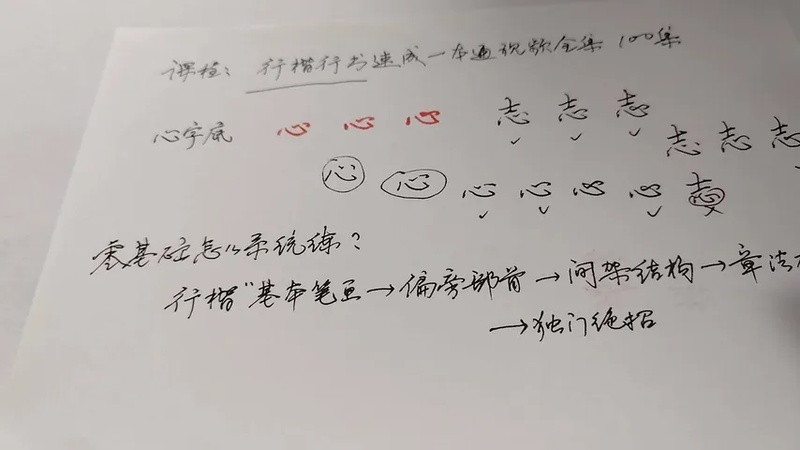 课程：行楷行书速成一本通视频全集 100集
心字底 心 心 心 志 志 志
志 志 志
心 心 心 心 心 心 志
零基础怎么系统练？
行楷“基本笔画→偏旁部首→间架结构→章法
→独门绝招